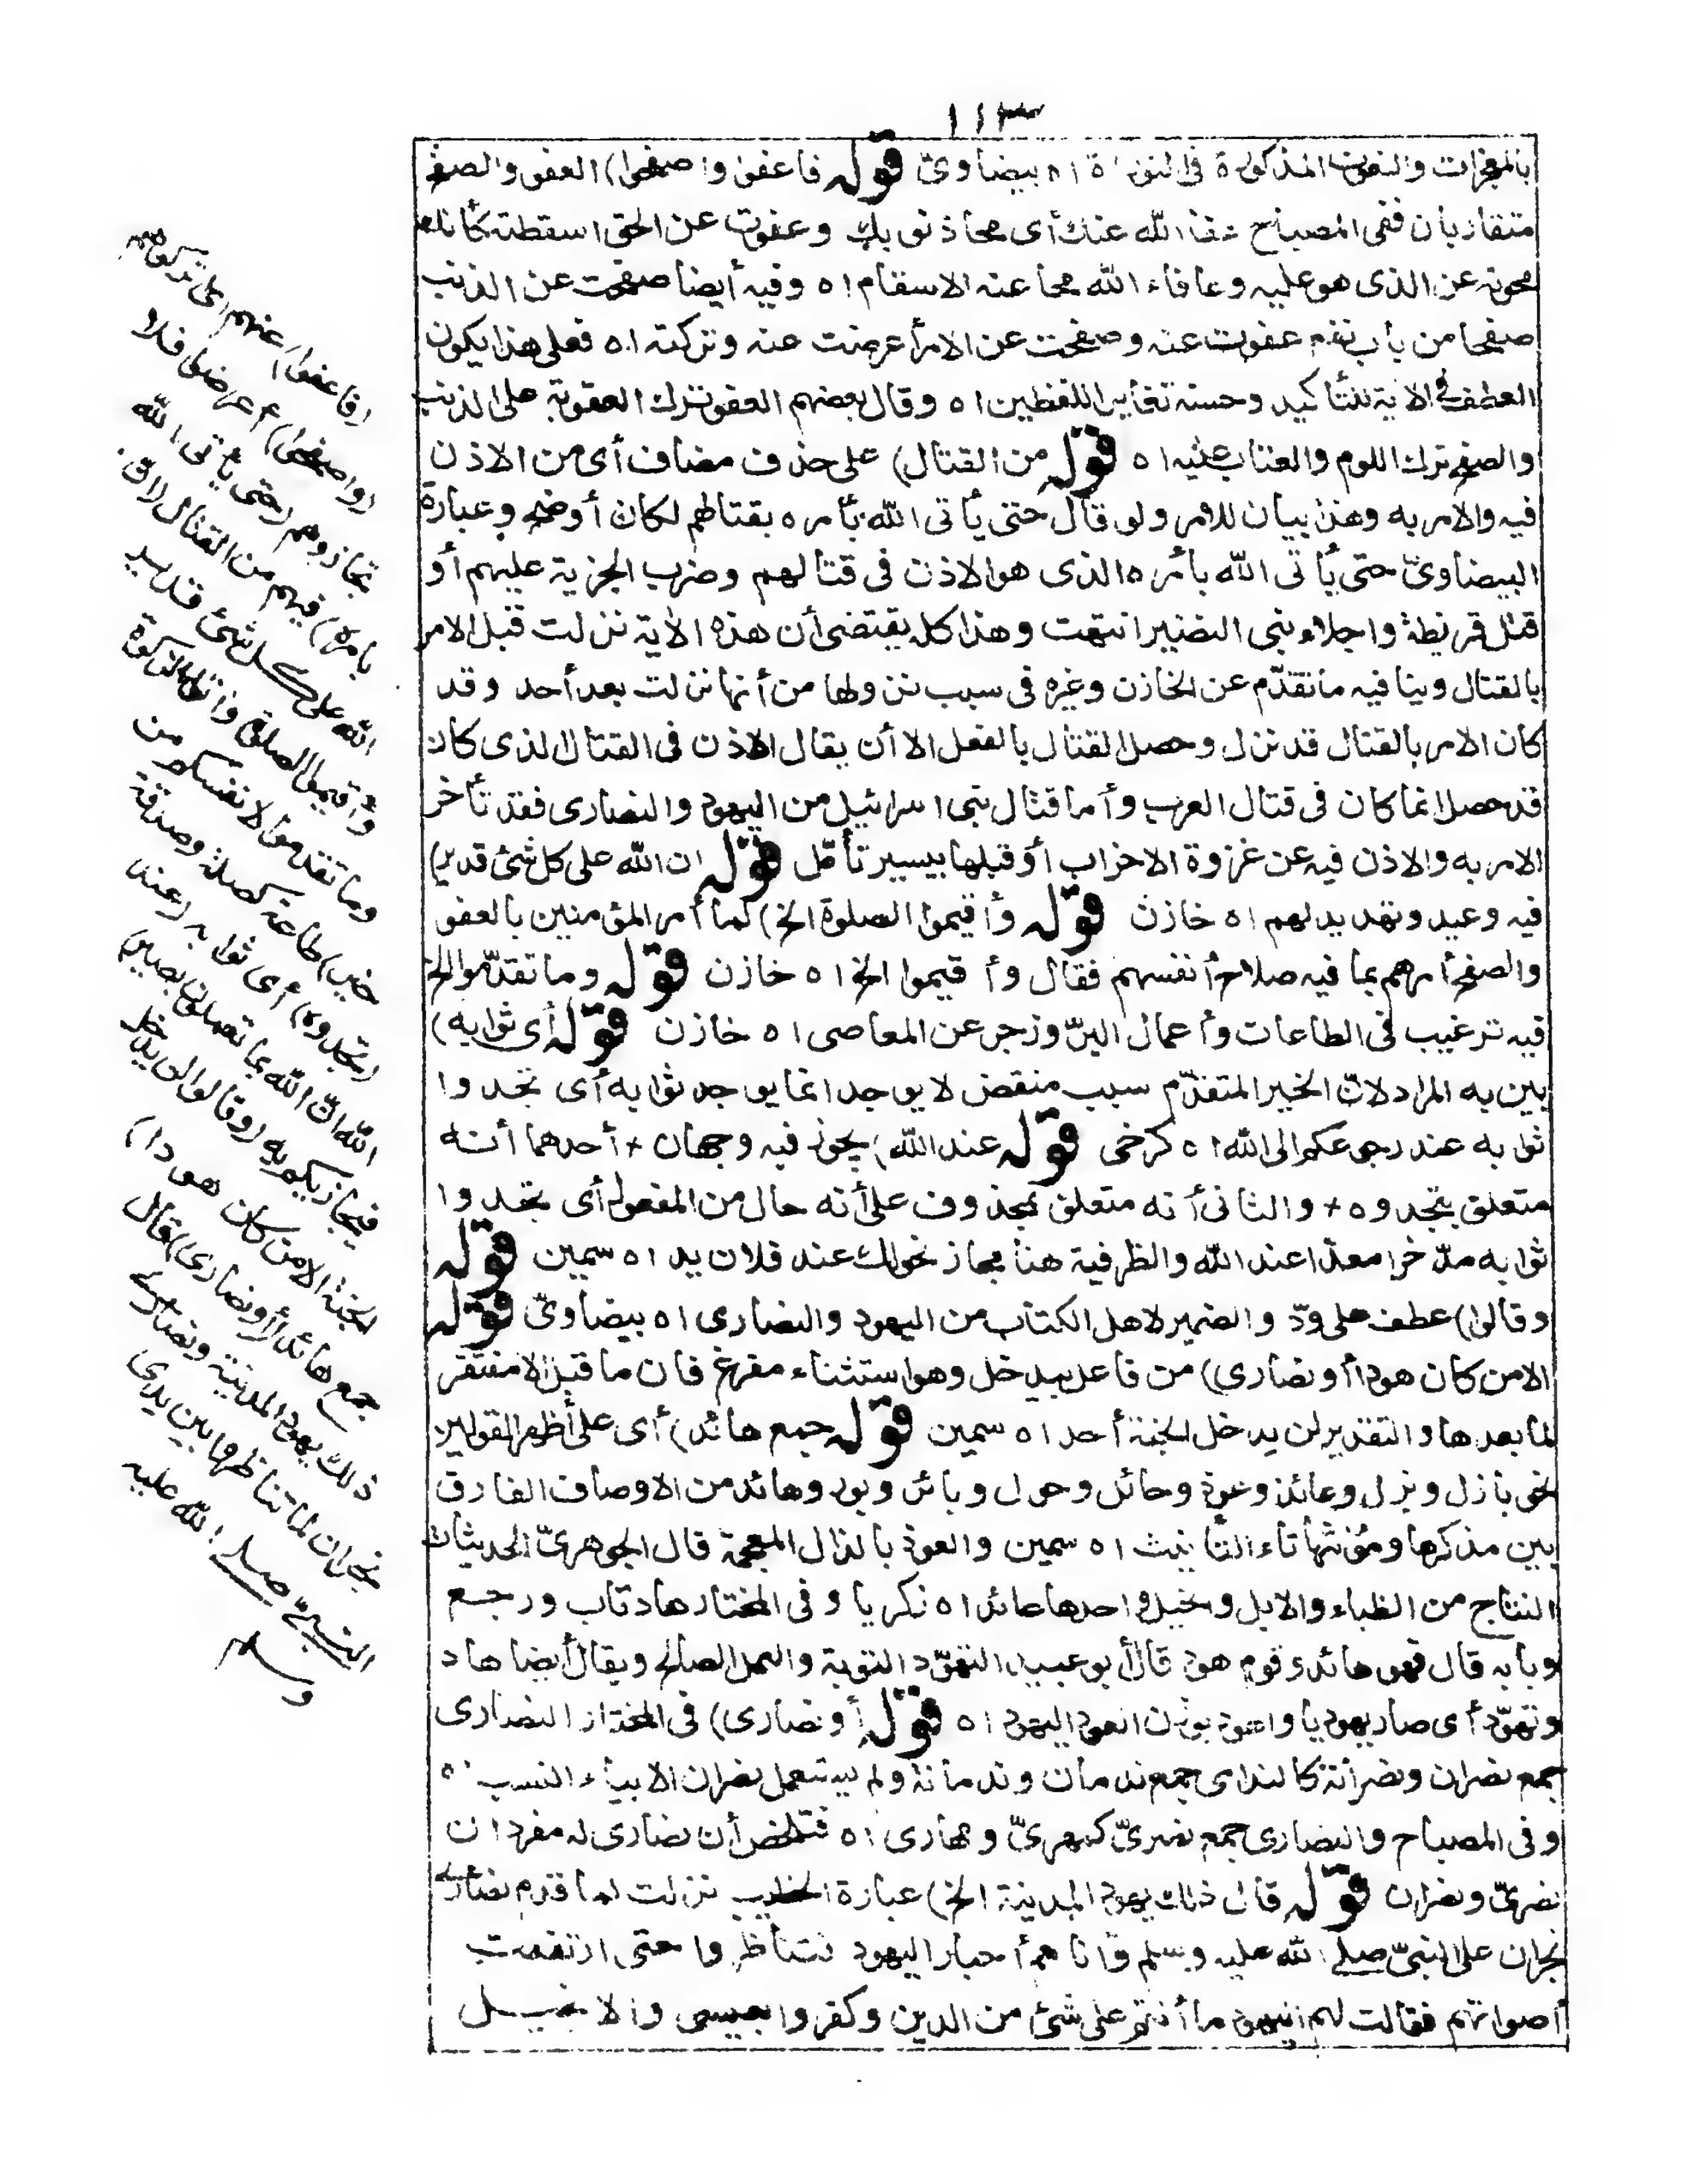 ١١٣
بالمعجزات والنعوت المذكورة فى التوراة اه بيضاوىّ قوله فاعفوا واصفحوا) العفو والصفح
متقاربان ففى المصباح عفا الله عنك أى محا ذنوبك وعفوت عن الحق اسقطته كأنك
محوته عن الذى هو عليه وعافاء الله محا عنه الاسقام اه وفيه أيضا صفحت عن الذنب
صفحا من باب نفع عفوت عنه وصفحت عن الامر أعرضت عنه وتركته اه فعلى هذا يكون
العطف فى الآية للتأكيد وحسنه تغاير اللفظين اه وقال بعضهم العفو ترك العقوبة على الذنب
والصفح ترك اللوم والعتاب عليه اه قوله من القتال) على حذف مضاف أى من الاذن
فيه والامر به وهذا بيان للامر ولو قال حتى يأتى الله بأمره بقتالهم لكان أوضح وعبارة
البيضاوىّ حتى يأتى الله بأمره الذى هو الاذن فى قتالهم وضرب الجزية عليهم أو
قتل قريظة واجلاء بنى النضير انتهت وهذا كله يقتضى أن هذه الآية نزلت قبل الامر
بالقتال وينافيه ما تقدّم عن الخازن وغيره فى سبب نزولها من أنها نزلت بعد أحد وقد
كان الامر بالقتال قد نزل وحصل القتال بالفعل الا أن يقال الاذن فى القتال الذى كان
قد حصل انما كان فى قتال العرب وأما قتال بنى اسرائيل من اليهود والنصارى فقد تأخر
الامر به والاذن فيه عن غزوة الاحزاب أو قبلها بيسير تأمّل قوله ان الله على كل شئ قدير)
فيه وعيد وتهديد لهم اه خازن قوله وأقيموا الصلوة الخ) كما أمر المؤمنين بالعفو
والصفح أمرهم بما فيه صلاح أنفسهم فقال وأقيموا الخ اه خازن قوله وما تقدّموا الخ
فيه ترغيب فى الطاعات وأعمال البرّ وزجر عن المعاصى اه خازن قوله أى ثوابه)
بين به المراد لانّ الخير المتقدّم سبب منقض لا يوجد انما يوجد ثوابه أى تجدوا
ثوابه عند رجوعكم الى الله اه كرخى قوله عند الله) يجوز فيه وجهان + أحدهما أنه
متعلق بتجدوه + والثانى أنه متعلق بمحذوف على أنه حال من المفعول أى تجدوا
ثوابه مدّخرا معدّا عند الله والظرفية هنا مجاز نحو لك عند فلان يد اه سمين قوله
وقالوا) عطف على ودّ والضمير لاهل الكتاب من اليهود والنصارى اه بيضاوىّ قوله
الا من كان هودا أو نصارى) من فاعل بيدخل وهو استثناء مفرغ فان ما قبل الا مفتقر
لما بعدها والتقدير لن يدخل الجنة أحد اه سمين قوله جمع هائد) أى على أظهر القولين
نحو بازل وبزل وعائذ وعوذ وحائل وحول وبائر وبور وهائد من الاوصاف الفارق
بين مذكرها ومؤنثها تاء التأنيث اه سمين والعوذ بالذال المعجمة قال الجوهرىّ الحديثات
النتاج من الظباء والابل والخيل واحدها عائذ اه زكريا وفى المختار هاد تاب ورجع
وبابه قال فهو هائد وقوم هود قال أبو عبيد التهوّد التوبة والعمل الصالح ويقال أيضا هاد
وتهوّد أى صار يهوديا والهود بوزن العود اليهود اه قوله أو نصارى) فى المختار النصارى
جمع نصران ونصرانة كالندامى جمع ندمان وندمانة ولم يستعمل نصران الا بياء النسب اه
وفى المصباح والنصارى جمع نصرىّ كمهرىّ ومهارى اه فتلخص أن نصارى له مفردان
نصرىّ ونصران قوله قال ذلك يهود المدينة الخ) عبارة الخطيب نزلت لما قدم نصارى
نجران على النبىّ صلى الله عليه وسلم وأتاهم أحبار اليهود فتناظروا حتى ارتفعت
أصواتهم فقالت لهم اليهود ما أنتم على شئ من الدين وكفروا بعيسى والانجيل
(فاعفوا) عنهم أى اتركوهم
(واصفحوا) أعرضوا فلا
تجازوهم (حتى يأتى الله
بأمره) فيهم من القتال (ان
الله على كل شئ قدير
وأقيموا الصلوة وآتوا الزكوة
وما تقدموا لانفسكم من
خير) طاعة كصلة وصدقة
(تجدوه) أى ثوابه (عند
الله ان الله بما تعملون بصير)
فيجازيكم به (وقالوا لن يدخل
الجنة الا من كان هودا)
جمع هائد (أو نصارى) قال
ذلك يهود المدينة ونصارى
نجران لما تناظروا بين يدى
النبىّ صلى الله عليه
وسلم